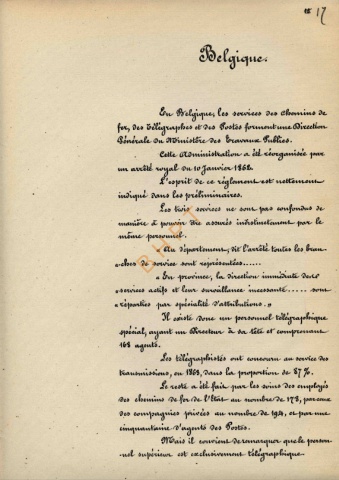 18 17
Belgique.
En Belgique, les services des chemins de
fer, des Télégraphes et des Postes forment une Direction
Générale du Ministère des Travaux Publics.
Cette Administration a été réorganisée par
un arrêté royal du 10 Janvier 1862.
L'esprit de ce règlement est nettement
indiqué dans les préliminaires.
Les trois services ne sont pas confondus de
manière à pouvoir être assurés indistinctement par le
même personnel.
"Au département, dit l'arrêté toutes les bran-
"ches de service sont représentées.....
"En province, la direction immédiate des
"services actifs et leur surveillance incessante..... sont
"réparties par spécialité d'attributions."
Il existe donc un personnel télégraphique
spécial, ayant un Directeur à sa tête et comprenant
168 agents.
Les télégraphistes ont concouru au service des
transmissions, en 1863, dans la proportion de 87%.
Le reste a été fait par les soins des employés
des chemins de fer de l'Etat au nombre de 173, par ceux
des compagnies privées au nombre de 194, et par une
cinquantaine d'agents des Postes.
Mais il convient de remarquer que le person-
nel supérieur est exclusivement télégraphique